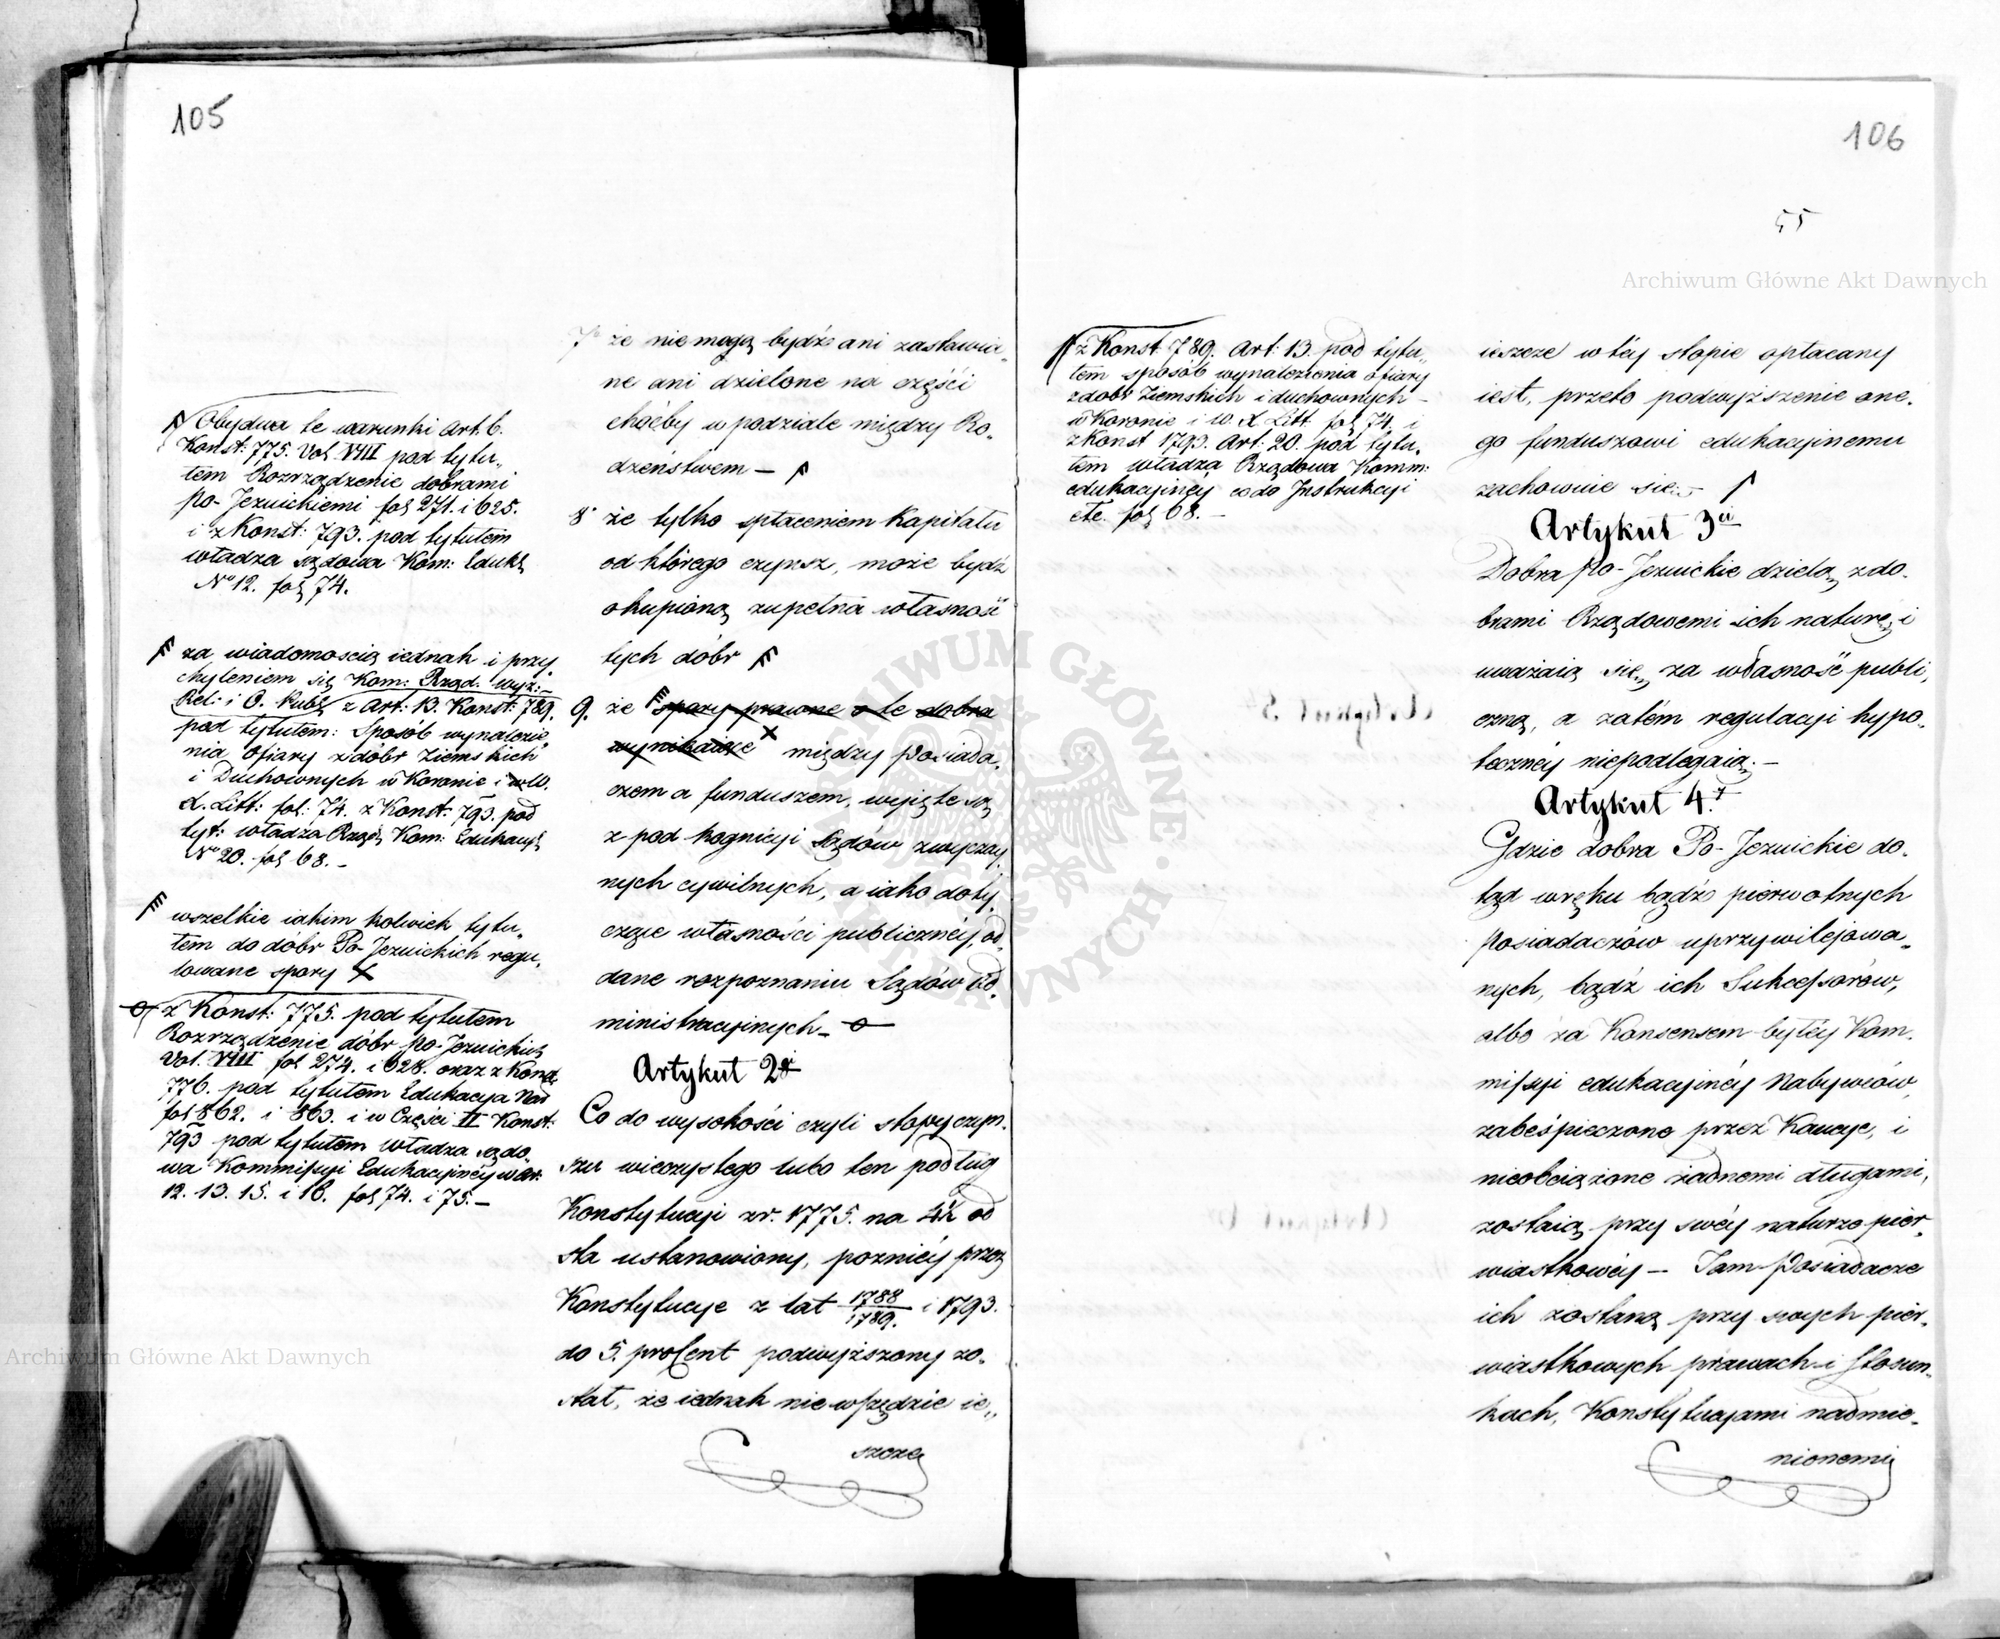 105
Obydwa te warunki Art. 6.
Konst: 775. Vol. VIII pod tytu„
tem Rozrządzenie dobrami
po-Jezuickiemi fol 271. i 625.
i z Konst: 793. pod tytułem
władza sądowa Kom: Eduk:
No 12. fol 74.
za wiadomością iednak i przy„
chyleniem się Kom: Rząd. wyz:–
Rel: i O. Publ z Art: 13. Konst: 789.
pod tytułem: Sposób wynalezie„
nia Ofiary z dóbr Ziemskich
i Duchownych w Koronie i w W.
X. Litt: fol: 74. z Konst: 793. pod
tyt: władza Rząd: Kom: Edukacyi
No 20. fol 68.–
wszelkie iakim kolwiek tytu„
łem do dóbr Po-Jezuickich regu„
lowane spory
z Konst: 775. pod tytułem
Rozrządzenie dóbr po-Jezuickich
Vol. VIII fol 274. i 628. oraz z Konst.
776. pod tytułem Edukacya Nad
fol 862. i 863. i w Części II Konst:
793 pod tytułem Władza sądo„
wa Kommissyi Edukacyinéy war:
12. 13. 15. i 16. fol 74. i 75.–
7o że nie mogą bydź ani zastawia„
ne ani dzielone na części
choćby w podziale między Ro„
dzeństwem –
8o że tylko spłaceniem Kapitału
od którego czynsz, może bydź
okupioną zupełna własność
tych dóbr
9. że spory prawne o te dobra
wynikaiące między Posiada„
czem a funduszem, wyięte są
z pod kognicyi Sądów zwyczay„
nych cywilnych, a iako doty„
czące własności publicznéy, od„
dane rozpoznaniu Sądów Ad„
ministracyinych –
Artykuł 2gi
Co do wysokości czyli stopy czyn„
szu wieczystego lubo ten podług
Konstytucyi z r. 1775. na 4½ od
sta ustanowiony, poznieéy przez
Konstytucye z lat 1788/1789. i 1793.
do 5. procent podwyższony zo„
stał, że iednak nie wszędzie ie„
szcze
106
55
z Konst. 789. Art: 13. pod tytu„
łem sposób wynalezienia ofiary
z dóbr Ziemskich i duchownych –
w Koronie i W. X Litt. fol 74. i
z Konst 1793. Art: 20. pod tytu„
łem władza Rządowa Komm:
edukacyinéy co do Instrukcyi
etc. fol 68.–
ieszcze w téy stopie opłacany
iest, przeto podwyższenie one„
go funduszowi edukacyinemu
zachowuie się. –
Artykuł 3ci
Dobra Po-Jezuickie dzielą z do„
brami Rządowemi ich naturę, i
uważaią się za własność publi„
czną, a zatém regulacyi hypo„
tecznéy niepodlegaią. –
Artykuł 4.ty
Gdzie dobra Po-Jezuickie do„
tąd w ręku bądź pierwotnych
Posiadaczów uprzywilejowa„
nych, bądź ich Sukcessorów,
albo za Konsensem byłéy Kom„
missyi edukacyinéy Nabywców,
zabéśpieczone przez Kaucye, i
nieobciążone żadnemi długami,
zostaią przy swéy naturze pier„
wiastkowéy – Tam Posiadacze
ich zostaną przy swych pier„
wiastkowych prawach i Stosun„
kach, Konstytucyami nadmie„
nionemi
Archiwum Główne Akt Dawnych
Archiwum Główne Akt Dawnych
ARCHIWUM GŁÓWNE AKT DAWNYCH